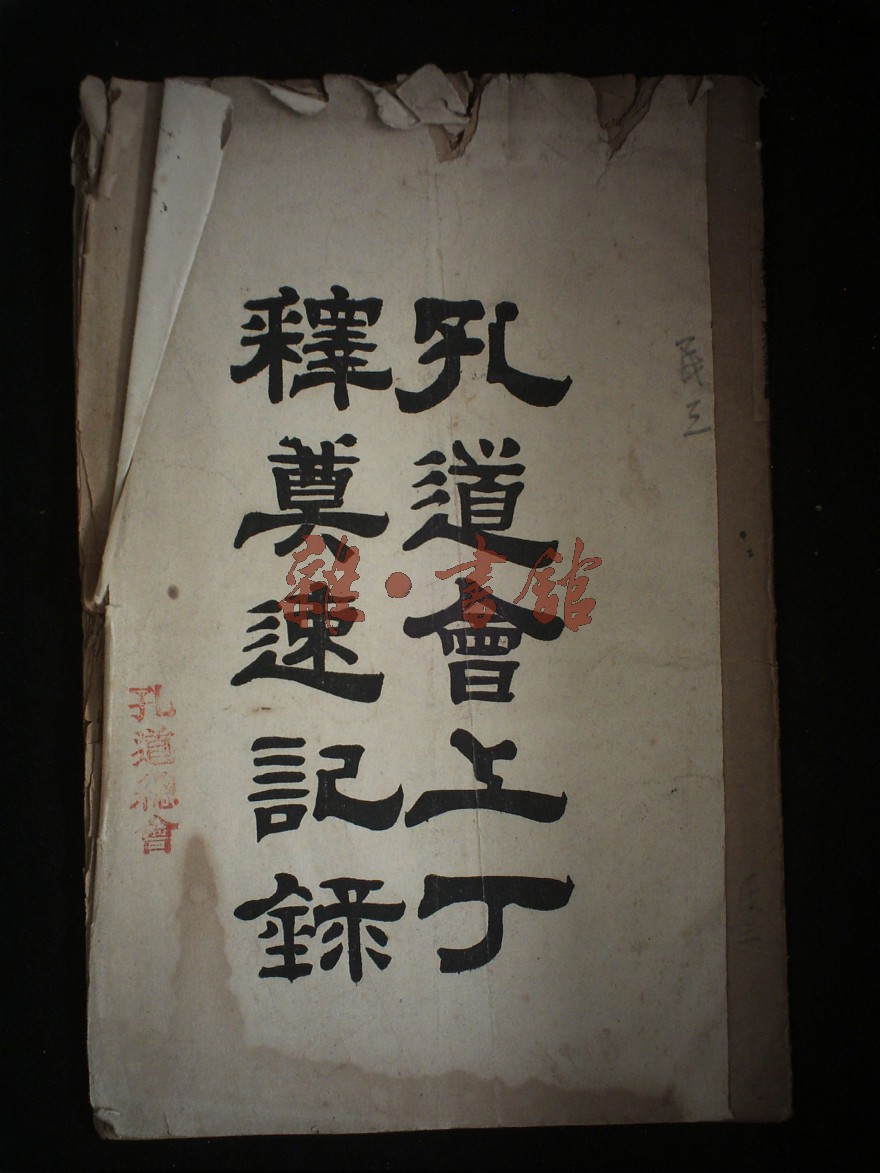 孔道會上丁
釋奠速記錄
民三
孔道總會
雜·書館